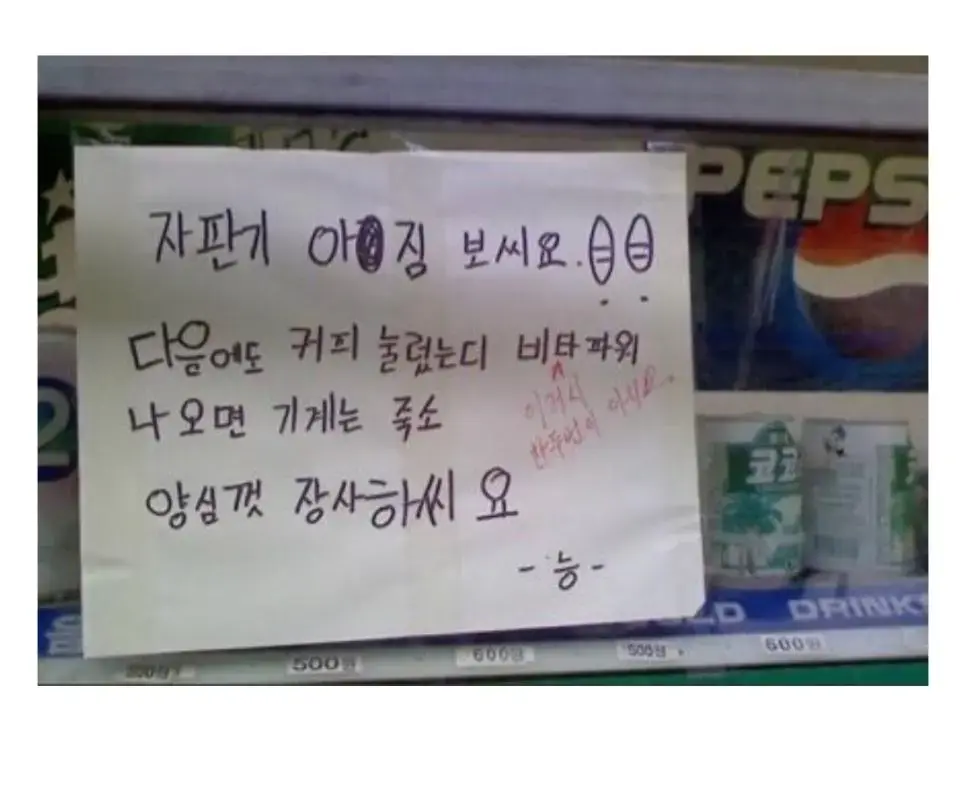 자판기 아짐 보씨요.!!
다음에도 커피 눌렀는디 비타파워
나오면 기계는 죽소
이거시 한두번이 아시요.
양심껏 장사하씨요
-능-
PEPS
코코
COLD DRINK
500원
500원
600원
500원
600원
2